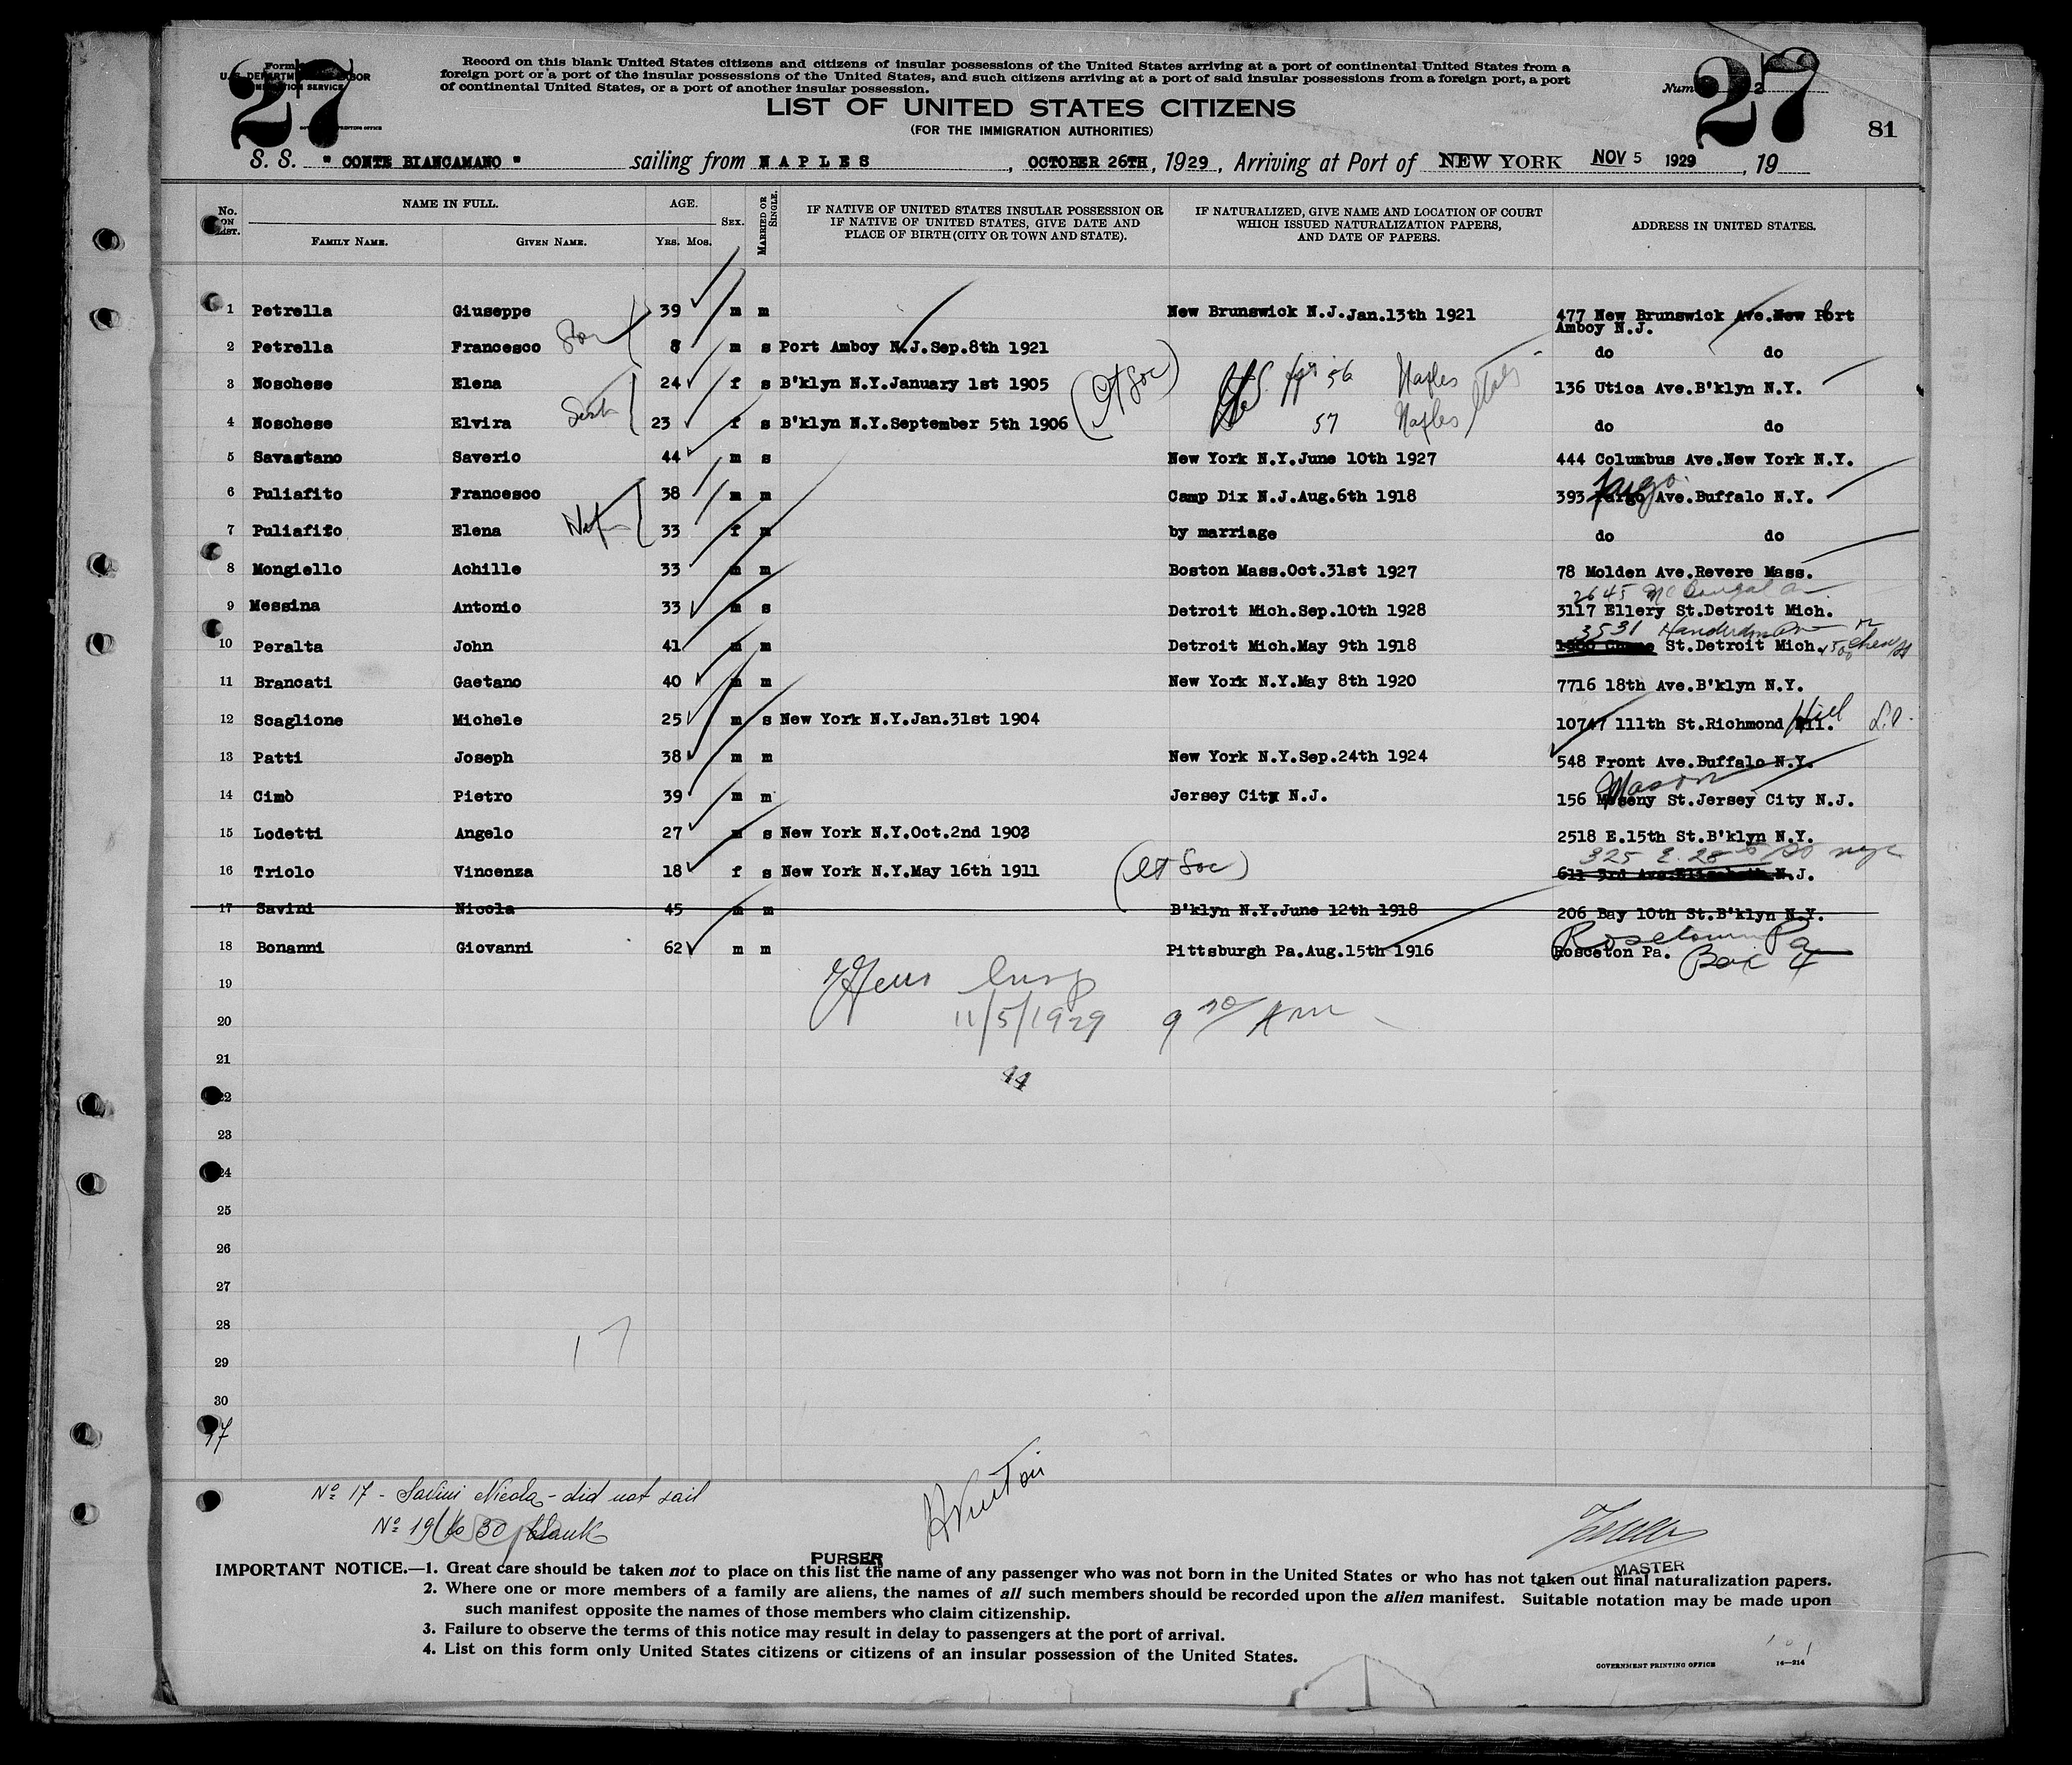 27
27
81
Record on this blank United States citizens and citizens of insular possessions of the United States arriving at a port of continental United States from a
foreign port or a port of the insular possessions of the United States, and such citizens arriving at a port of said insular possessions from a foreign port, a port
of continental United States, or a port of another insular possession.
LIST OF UNITED STATES CITIZENS
(FOR THE IMMIGRATION AUTHORITIES)
S. S. " CONTE BIANCAMANO " sailing from NAPLES, OCTOBER 26TH, 1929, Arriving at Port of NEW YORK NOV 5 1929, 19
No. ON LIST. NAME IN FULL. AGE. SEX. MARRIED OR SINGLE. IF NATIVE OF UNITED STATES INSULAR POSSESSION OR IF NATIVE OF UNITED STATES, GIVE DATE AND PLACE OF BIRTH (CITY OR TOWN AND STATE). IF NATURALIZED, GIVE NAME AND LOCATION OF COURT WHICH ISSUED NATURALIZATION PAPERS, AND DATE OF PAPERS. ADDRESS IN UNITED STATES.
FAMILY NAME. GIVEN NAME. YRS. MOS.
1 Petrella Giuseppe 39 m m New Brunswick N.J.Jan.13th 1921 477 New Brunswick Ave.New Port
Amboy N.J.
2 Petrella Francesco Son 8 m s Port Amboy N.J.Sep.8th 1921 do do
3 Noschese Elena 24 f s B'klyn N.Y.January 1st 1905 56 Naples 136 Utica Ave.B'klyn N.Y.
4 Noschese Elvira 23 f s B'klyn N.Y.September 5th 1906 57 Naples do do
5 Savastano Saverio 44 m s New York N.Y.June 10th 1927 444 Columbus Ave.New York N.Y.
6 Puliafito Francesco 38 m m Camp Dix N.J.Aug.6th 1918 393 Fargo Ave.Buffalo N.Y.
7 Puliafito Elena 33 f m by marriage do do
8 Mongiello Achille 33 m m Boston Mass.Oct.31st 1927 78 Molden Ave.Revere Mass.
2645
9 Messina Antonio 33 m s Detroit Mich.Sep.10th 1928 3117 Ellery St.Detroit Mich.
3531
10 Peralta John 41 m m Detroit Mich.May 9th 1918 St.Detroit Mich.
11 Brancati Gaetano 40 m m New York N.Y.May 8th 1920 7716 18th Ave.B'klyn N.Y.
12 Scaglione Michele 25 m s New York N.Y.Jan.31st 1904 10747 111th St.Richmond Hill
13 Patti Joseph 38 m m New York N.Y.Sep.24th 1924 548 Front Ave.Buffalo N.Y.
Mason
14 Cimò Pietro 39 m m Jersey City N.J. 156 St.Jersey City N.J.
15 Lodetti Angelo 27 m s New York N.Y.Oct.2nd 1902 2518 E.15th St.B'klyn N.Y.
325 E. 28
16 Triolo Vincenza 18 f s New York N.Y.May 16th 1911 611 3rd Ave.Elizabeth N.J.
17 Savini Nicola 45 m m B'klyn N.Y.June 12th 1918 206 Bay 10th St.B'klyn N.Y.
18 Bonanni Giovanni 62 m m Pittsburgh Pa.Aug.15th 1916 Rosceton Pa. Box 4
19
20 11/5/1929 9 AM
21
44
22
23
24
25
26
27
28
17
29
30
17
No 17 - Savini Nicola - did not sail
No 19 to 30 blank
PURSER
MASTER
IMPORTANT NOTICE.—1. Great care should be taken not to place on this list the name of any passenger who was not born in the United States or who has not taken out final naturalization papers.
2. Where one or more members of a family are aliens, the names of all such members should be recorded upon the alien manifest. Suitable notation may be made upon
such manifest opposite the names of those members who claim citizenship.
3. Failure to observe the terms of this notice may result in delay to passengers at the port of arrival.
4. List on this form only United States citizens or citizens of an insular possession of the United States.
GOVERNMENT PRINTING OFFICE 14—214